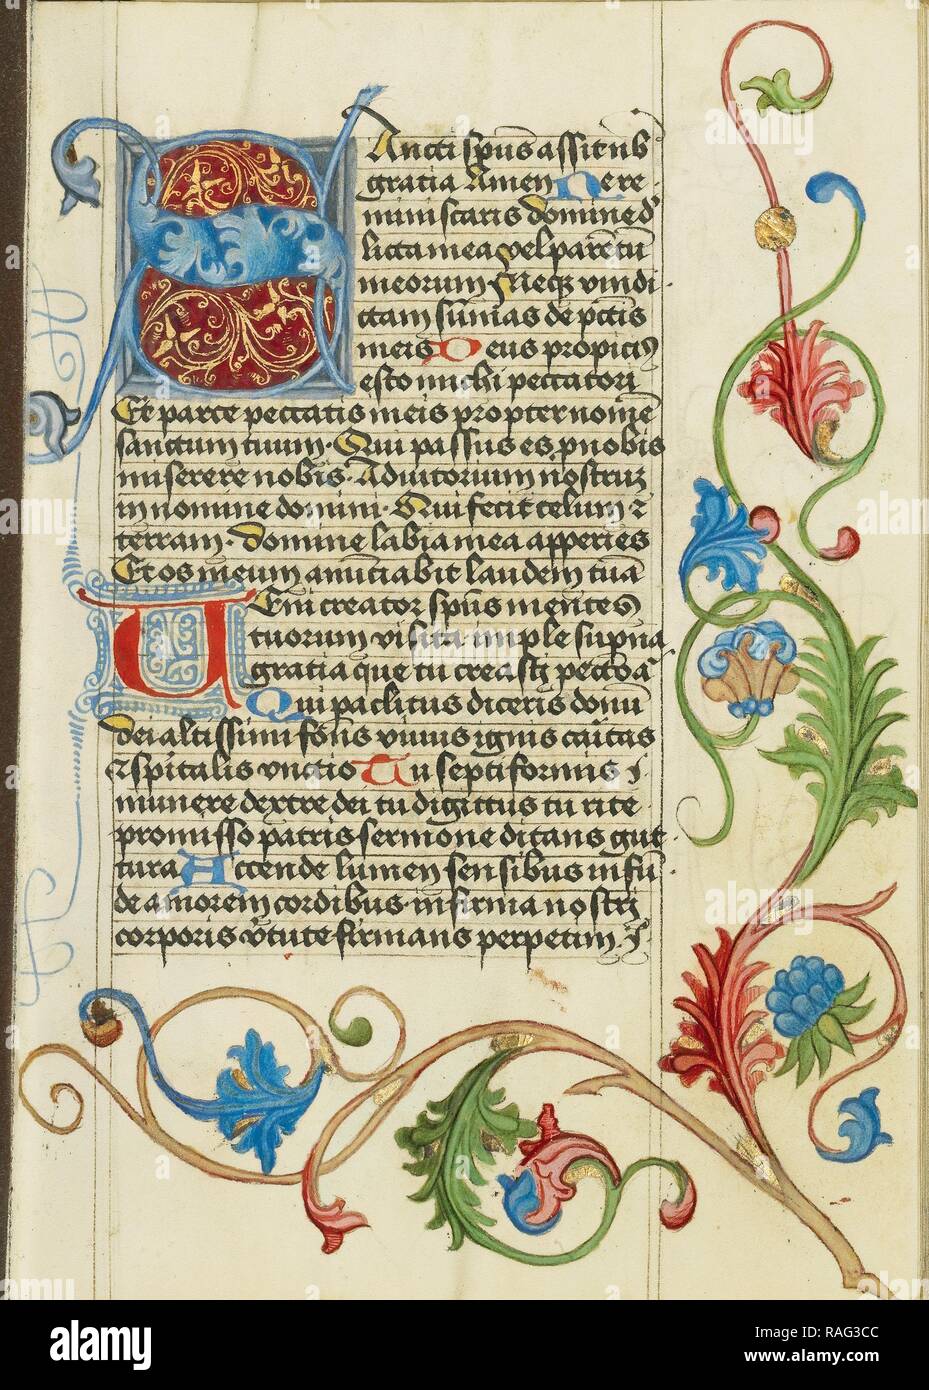 Sancti spūs assit nob
gratia Amen Ne re
miniscaris domine d'
licta mea vel parētū
meorum Neqz vindi
ctam sumas de pctīs
meis Deus propicius
esto michi peccatori
Et parce peccatis meis propter nomē
sanctum tuum · Qui passus es p nobis
miserere nobis · Adiutorium nostrū
in nomine domini · Qui fecit celum et
terram · Domine labia mea apperies
Et os meum anūctiabit laudem tuā
Veni creator spūs mentes
tuorum visita imple supna
gratia que tu creasti pectora
Qui paclitus diceris donū
dei altissimi fōns vivus ignis caritas
et spitalis vnctio Tu septiformis i
munere dextre dei tu digittus tu rite
promisso patris sermone ditans gut
tura Accende lumen sensibus infū
de amorem cordibus infirma nostri
corporis v'tute firmans perpetim
alamy
Image ID: RAG3CC
www.alamy.com